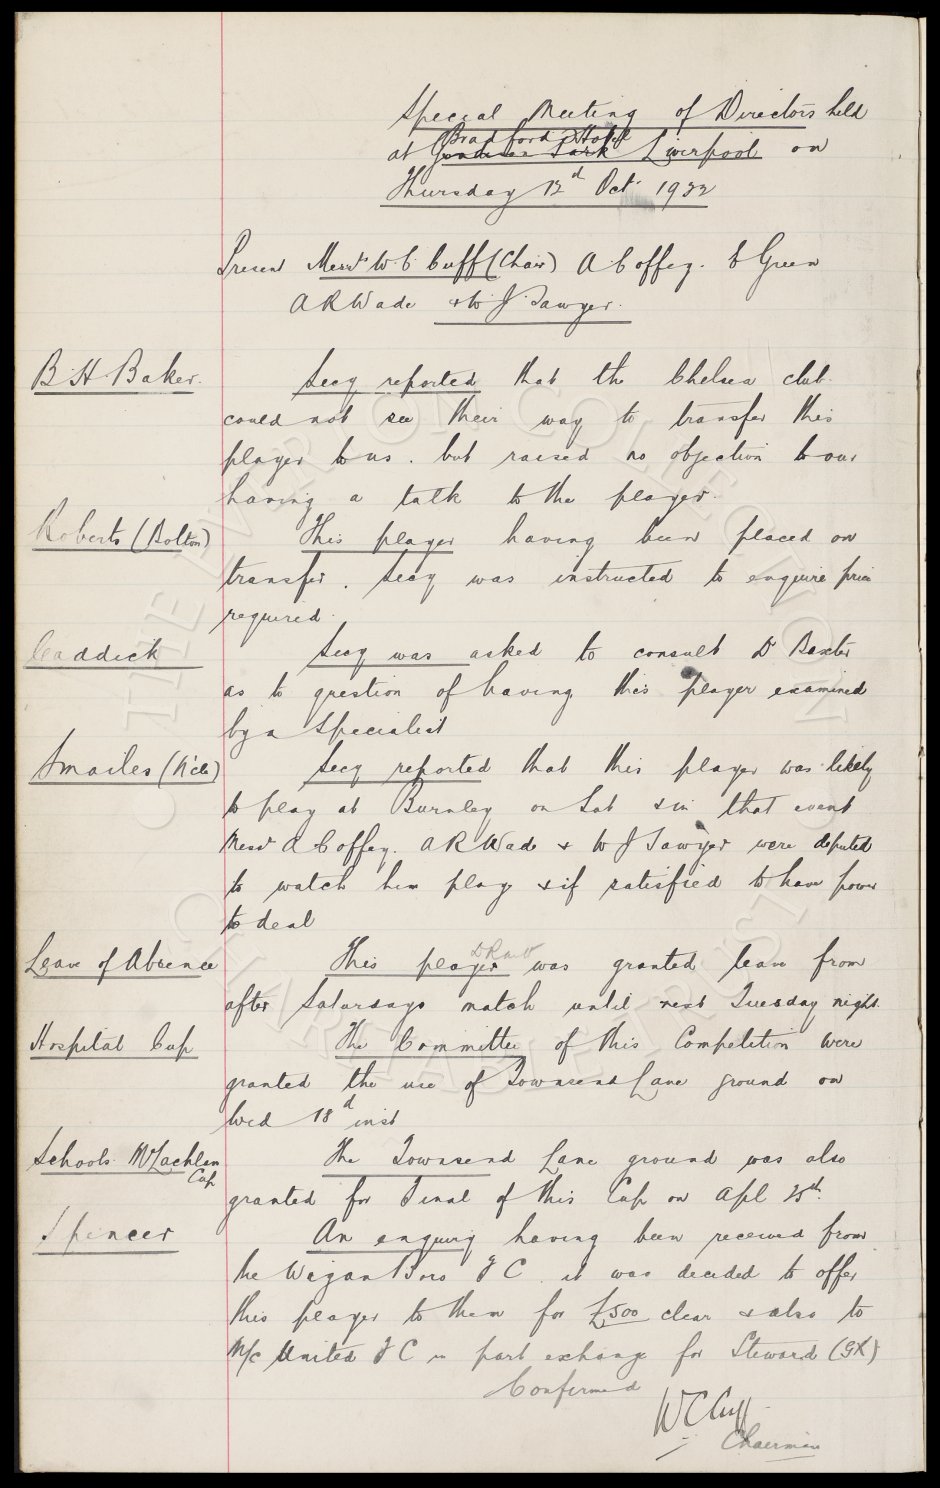 Special Meeting of Directors held
Bradford Hotel
at Goodison Park Liverpool on
Thursday 12d Oct 1922
Present Messrs W. C. Cuff (Chair) A. Coffey. E Green
A R Wade & W J Sawyer.
B. H. Baker. Secy reported that the Chelsea club.
could not see their way to transfer this
player to us. but raised no objection to our
having a talk to the player.
Roberts (Bolton) This player having been placed on
transfer. Secy was instructed to enquire price
required.
Caddick Secy was asked to consult Dr Baxter
as to question of having this player examined
by a Specialist
Smailes (N'cle) Secy reported that this player was likely
to play at Burnley on Sat & in that event
Messrs A Coffey. A R Wade & W J Sawyer were deputed
to watch him play & if satisfied to have power
to deal
D Raitt
Leave of Absence This player was granted leave from
after Saturdays match until next Tuesday night.
Hospital Cup The Committee of this Competition were
granted the use of Townsend Lane ground on
Wed 18d inst
Schools McLachlan Cup The Townsend Lane ground was also
granted for Final of this Cup on Apl 25th.
Spencer An enquiry having been received from
the Wigan Boro F C. it was decided to offer
this player to them for £500 clear & also to
M/c United F C in part exchange for Steward (GK)
Confirmed
W C Cuff
Chairman
THE EVERTON COLLECTION
CHARITABLE TRUST